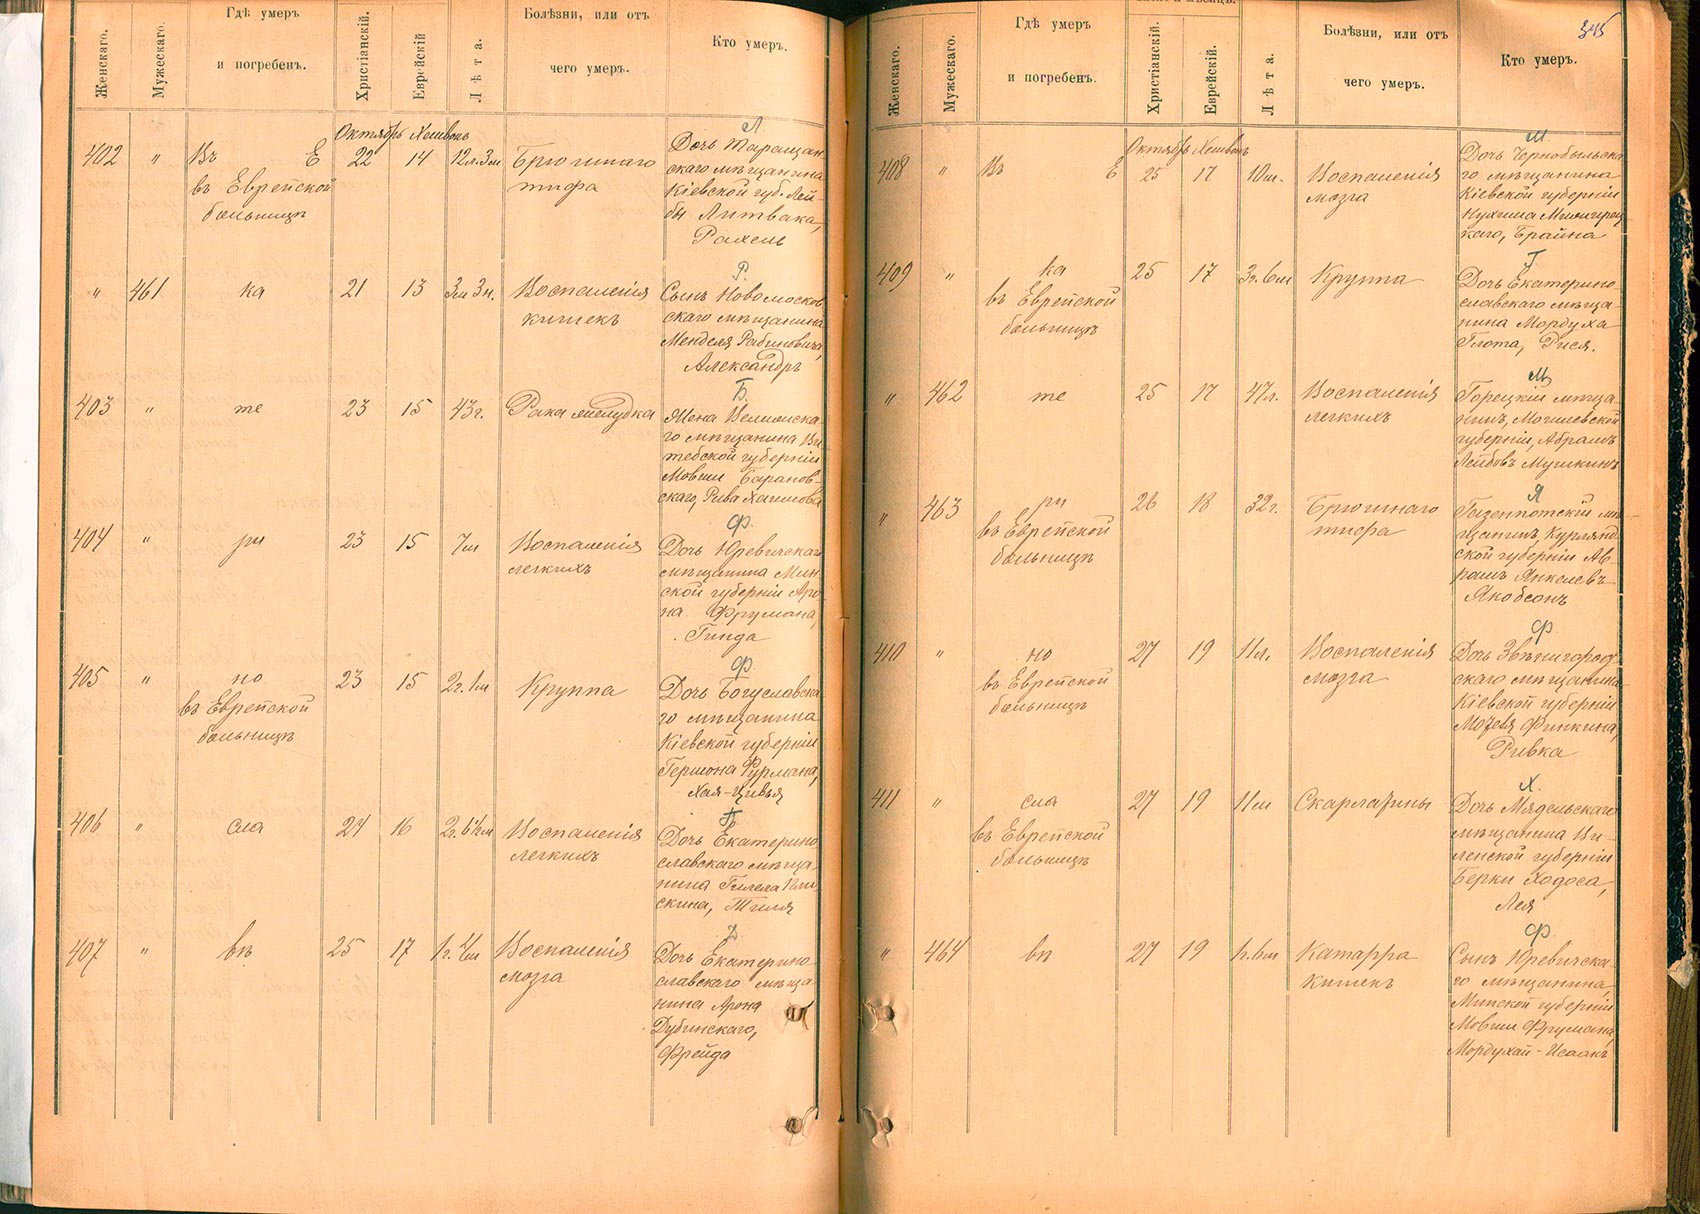 Женскаго.
Мужескаго.
Гдѣ умеръ
и погребенъ.
Христіанскій.
Еврейскій
Лѣта.
Болѣзни, или отъ
чего умеръ.
Кто умеръ.
Октябрь Хешванъ
402 " Въ Е 22 14 12л. 3м Брюшнаго
въ Еврейской тифа
больницѣ
Л
Дочь Таращан-
скаго мѣщанина
Кіевской губ. Лей-
бы Литвака,
Рахель
" 461 ка 21 13 3м 3н. Воспаленія
кишекъ
Р.
Сынъ Новомосков
скаго мѣщанина
Менделя Рабиновича,
Александръ
403 " те 23 15 43г. Рака желудка
Б.
Жена
го мѣщанина Ви
тебской губерніи
Мовши Баранов-
скаго, Рива Хаимова
404 " ри 23 15 7м Воспаленія
легкихъ
Ф.
Дочь Юревичскаго
мѣщанина Мин
ской губерніи Аро
на Фрумана,
Гинда
405 " но 23 15 2г. 1м Круппа
въ Еврейской
больницѣ
Ф
Дочь Богуславска
го мѣщанина
Кіевской губерніи
Гершона Фурмана,
Хая-Цивья
406 " сла 24 16 Воспаленія
легкихъ
Дочь Екатерино
славскаго мѣща-
нина Гилеля
скина,
407 " въ 25 17 1г. 4м Воспаленія
мозга
Д
Дочь Екатерино
славскаго мѣща-
нина Арона
Дубинскаго,
Фрейда
345
Женскаго.
Мужескаго.
Гдѣ умеръ
и погребенъ.
Христіанскій.
Еврейскій.
Лѣта.
Болѣзни, или отъ
чего умеръ.
Кто умеръ.
Октябрь Хешванъ
408 " Въ Е 25 17 10м. Воспаленія
мозга
М
Дочь Чернобыльска
го мѣщанина
Кіевской губерніи
каго, Брайна
409 " ка 25 17 3г. 6м Круппа
въ Еврейской
больницѣ
Г
Дочь Екатерино
славскаго мѣща-
нина Мордуха
Глота, Рися.
" 462 те 25 17 47л. Воспаленія
легкихъ
М
Горецкій мѣща
нинъ, Могилевской
губерніи, Абрамъ
Лейбовъ Мушкинъ
" 463 ри 26 18 32г. Брюшнаго
въ Еврейской тифа
больницѣ
Я
Газенпотскій мѣ-
щанинъ, Курлянд
ской губерніи Ав-
рамъ Янкелевъ
Якобсонъ
410 " но 27 19 11л. Воспаленія
въ Еврейской мозга
больницѣ
Ф
Дочь Звѣнигород-
скаго мѣщанина
Кіевской губерніи
Финкина,
Ривка
411 " сла 27 19 11м Скарлатины
въ Еврейской
больницѣ
Х.
Дочь Мядельскаго
мѣщанина Ви-
ленской губерніи
Берки Ходоса,
Лея
" 464 въ 27 19 1г. 6м Катарра
кишекъ
Ф
Сынъ Юревичска-
го мѣщанина,
Минской губерніи
Мовши Фрумана,
Мордухай-Исаакъ